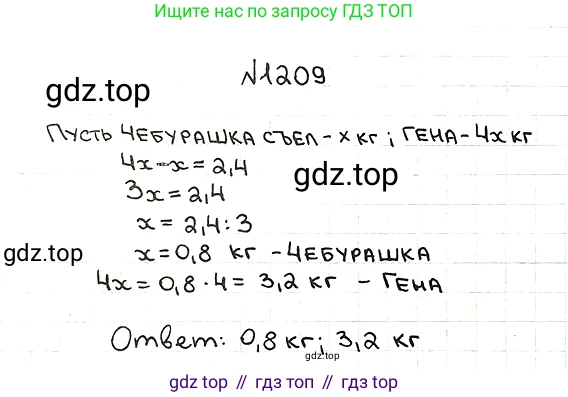 Ищите нас по запросу ГДЗ ТОП
№1209
gdz.top
Пусть Чебурашка съел – x кг; Гена – 4x кг
4x – x = 2,4
gdz.top
3x = 2,4
x = 2,4 : 3
gdz.top
x = 0,8 кг – Чебурашка
4x = 0,8 · 4 = 3,2 кг – Гена
Ответ: 0,8 кг; 3,2 кг
gdz.top
gdz top // гдз топ // gdz top